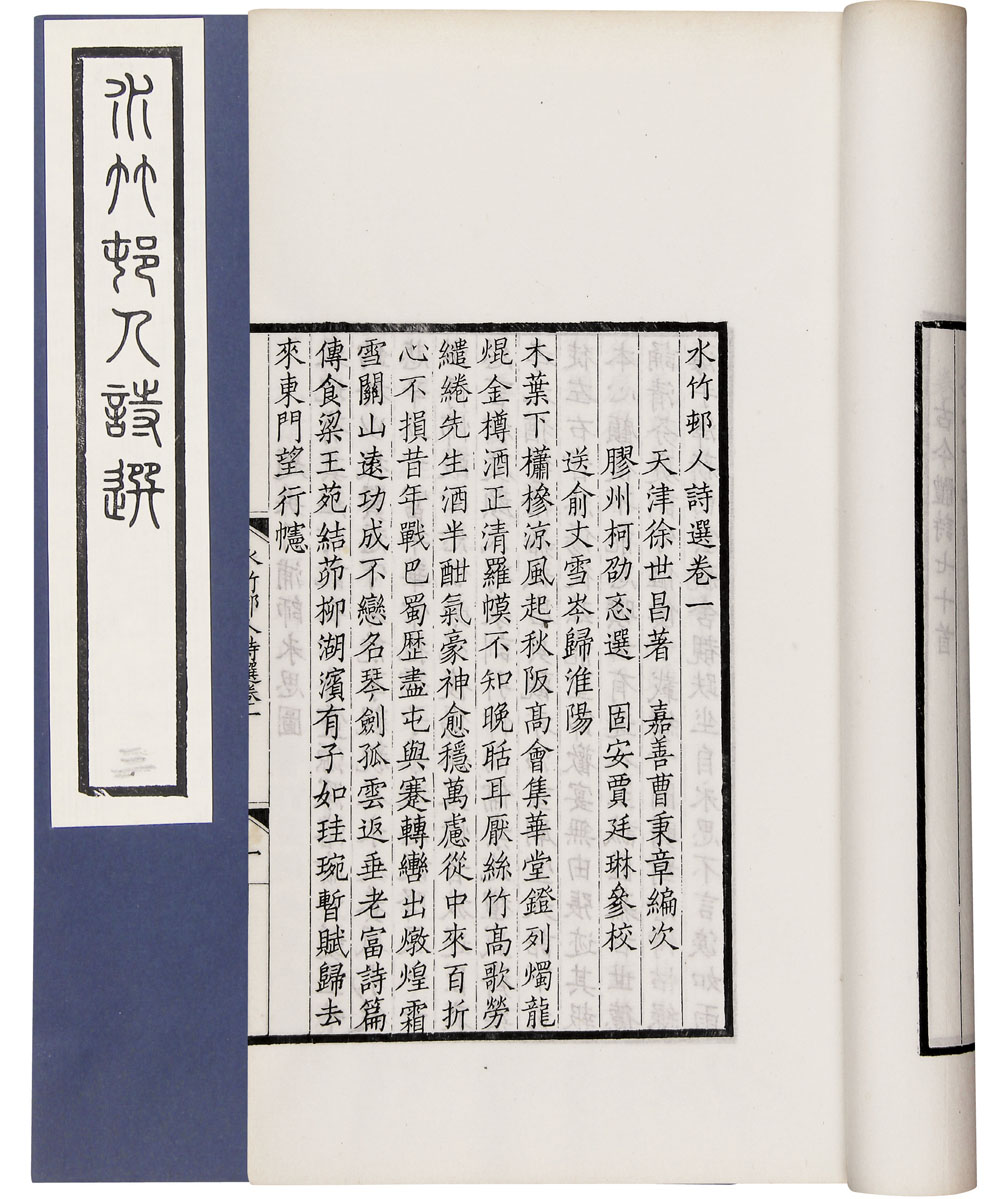 水竹邨人詩選
三
水竹邨人詩選卷一
天津徐世昌著 嘉善曹秉章編次
膠州柯劭忞選 固安賈廷琳參校
送俞丈雪岑歸淮陽
木葉下櫹槮涼風起秋阪高會集華堂鐙列燭龍
焜金樽酒正清羅幙不知晚聒耳厭絲竹高歌勞
繾綣先生酒半酣氣豪神愈穩萬慮從中來百折
心不損昔年戰巴蜀歷盡屯與蹇轉轡出燉煌霜
雪關山遠功成不戀名琴劍孤雲返垂老富詩篇
傳食梁王苑結茆柳湖濱有子如珪琬暫賦歸去
來東門望行幰
水竹邨人詩選卷一
一
古今體詩七十首